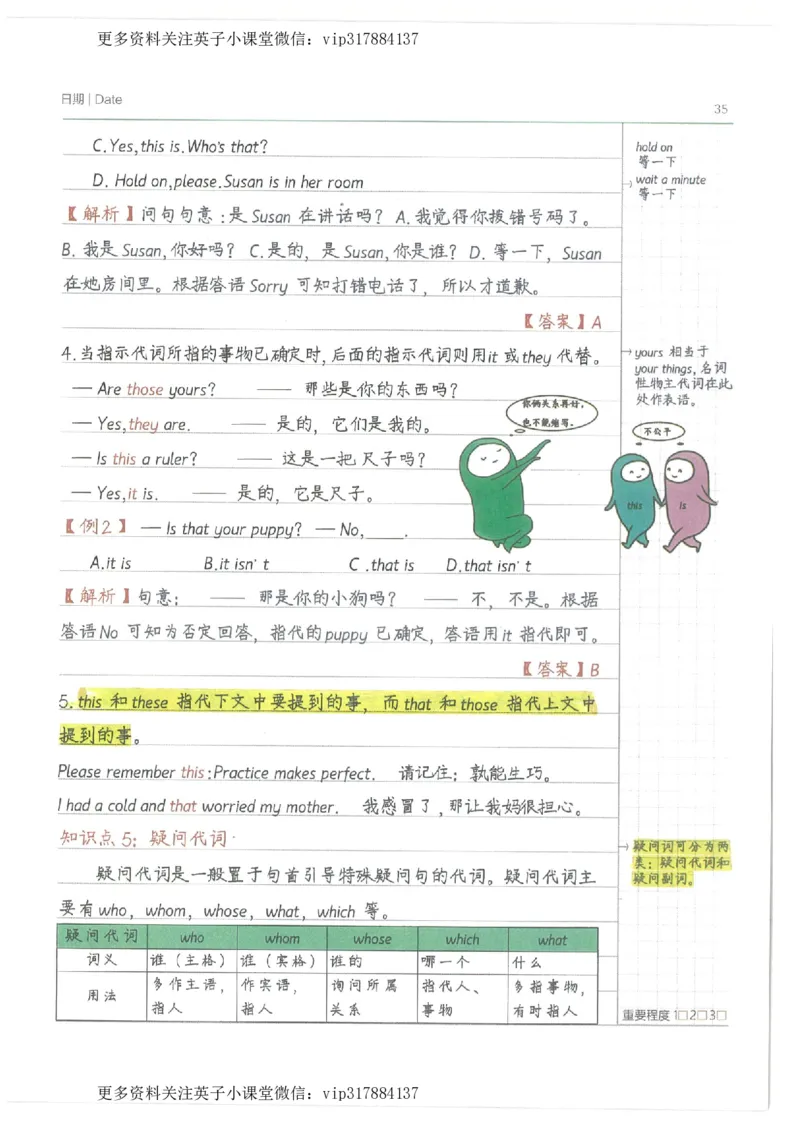 更多资料关注英子小课堂微信：vip317884137
日期 | Date
35
C.Yes,this is.Who's that?
D. Hold on,please.Susan is in her room
【解析】问句句意：是 Susan 在讲话吗？ A.我觉得你拨错号码了。
B. 我是 Susan,你好吗？ C.是的，是 Susan,你是谁？ D. 等一下，Susan
在她房间里。根据答语 Sorry 可知打错电话了，所以才道歉。
【答案】A
hold on
等一下
wait a minute
等一下
4.当指示代词所指的事物已确定时,后面的指示代词则用it 或they 代替。
— Are those yours? —— 那些是你的东西吗？
— Yes,they are. —— 是的，它们是我的。
— Is this a ruler? —— 这是一把尺子吗？
— Yes,it is. —— 是的，它是尺子。
yours 相当于
your things,名词
性物主代词在此
处作表语。
你俩关系再好，
也不能缩写。
不公平
this
is
【例2】 — Is that your puppy? — No,____.
A.it is B.it isn't C .that is D.that isn't
【解析】句意： —— 那是你的小狗吗？ —— 不，不是。根据
答语No 可知为否定回答，指代的puppy 已确定，答语用it 指代即可。
【答案】B
5.this 和 these 指代下文中要提到的事，而 that 和 those 指代上文中
提到的事。
Please remember this:Practice makes perfect. 请记住：孰能生巧。
I had a cold and that worried my mother. 我感冒了,那让我妈很担心。
知识点 5：疑问代词·
疑问代词是一般置于句首引导特殊疑问句的代词。疑问代词主
要有who，whom，whose，what，which 等。
疑问词可分为两
类：疑问代词和
疑问副词。
疑问代词 who whom whose which what
词义 谁（主格） 谁（宾格） 谁的 哪一个 什么
用法 多作主语，指人 作宾语，指人 询问所属关系 指代人、事物 多指事物，有时指人
重要程度 1□2□3□
更多资料关注英子小课堂微信：vip317884137